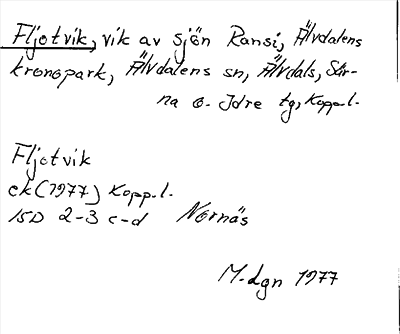 Fljotvik, vik av sjön Ransi, Älvdalens
kronopark, Älvdalens sn, Älvdals, Sär-
na o. Idre tg, Kopp.l.
Fljotvik
ek (1977) Kopp.l.
15D 2-3 c-d Nornäs
M.dgn 1977